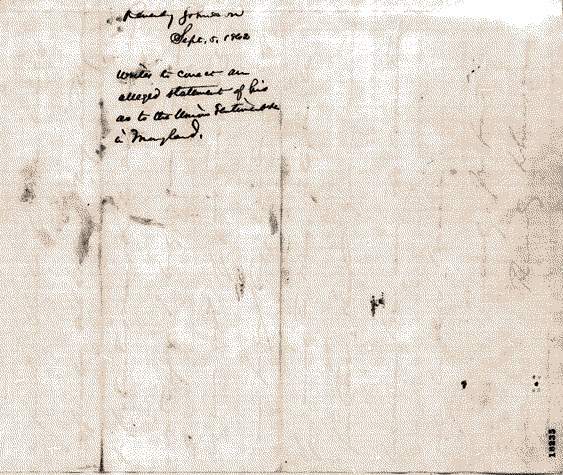 Reverdy Johnson
Sept. 5, 1862
Writes to correct an
alleged statement of his
as to the Union Sentiment
in Maryland.
18255